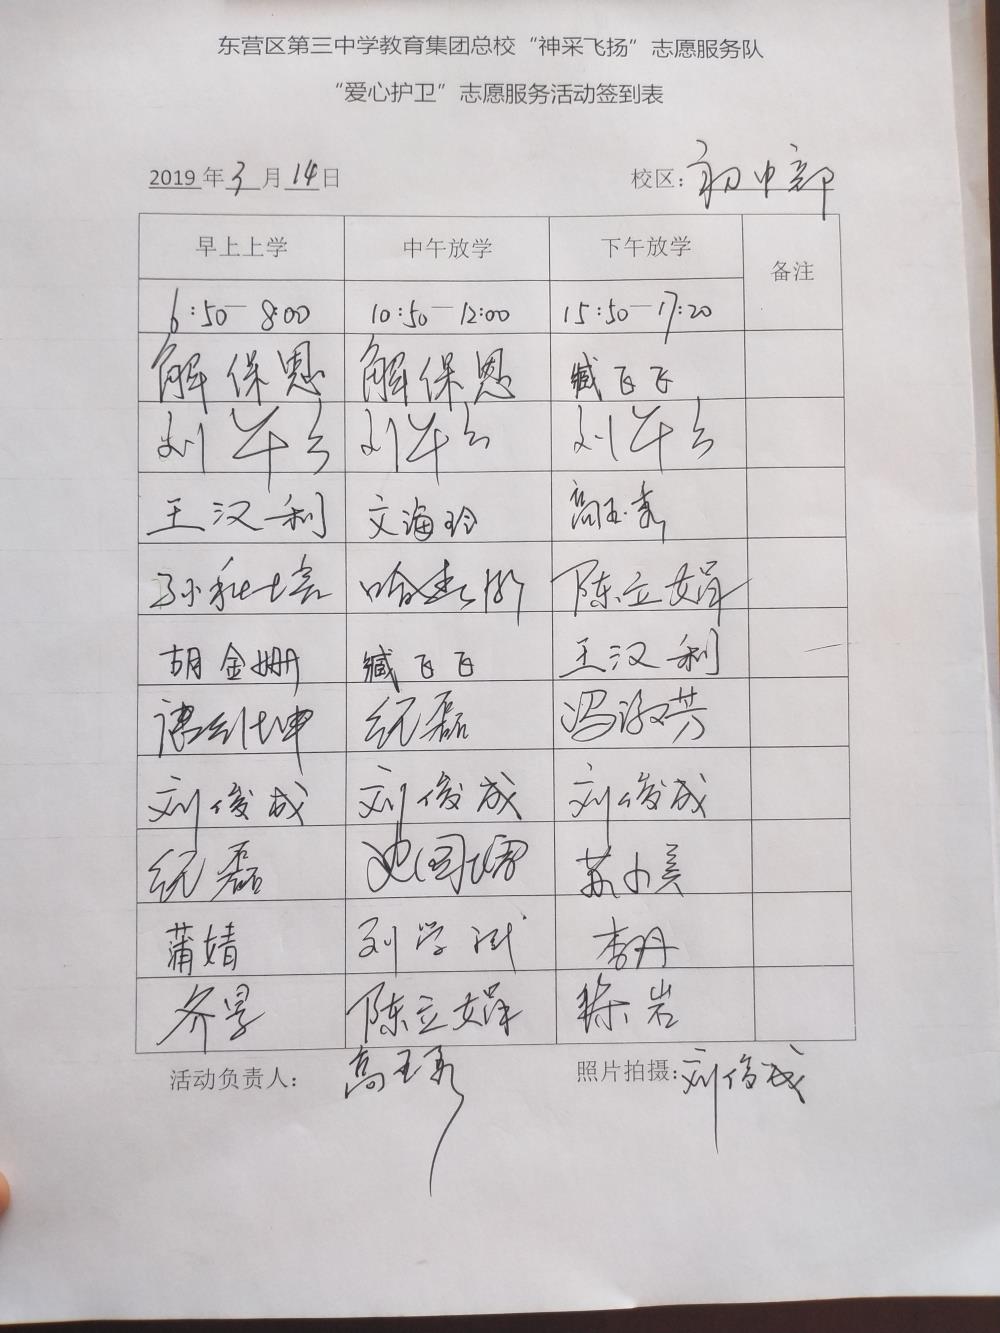 东营区第三中学教育集团总校“神采飞扬”志愿服务队
“爱心护卫”志愿服务活动签到表
2019年3月14日 校区：初中部
早上上学 中午放学 下午放学 备注
6:50—8:00 10:50—12:00 15:50—17:20
解保恩 解保恩 臧飞飞
刘军云 刘军云 刘军云
王汉利 文海玲 高玉秀
陈立娟
胡金姗 臧飞飞 王汉利
纪磊 冯淑芳
刘俊成 刘俊成 刘俊成
纪磊 苏小美
蒲婧 刘学斌 李丹
齐景 陈立娟 徐岩
活动负责人： 照片拍摄：刘俊成